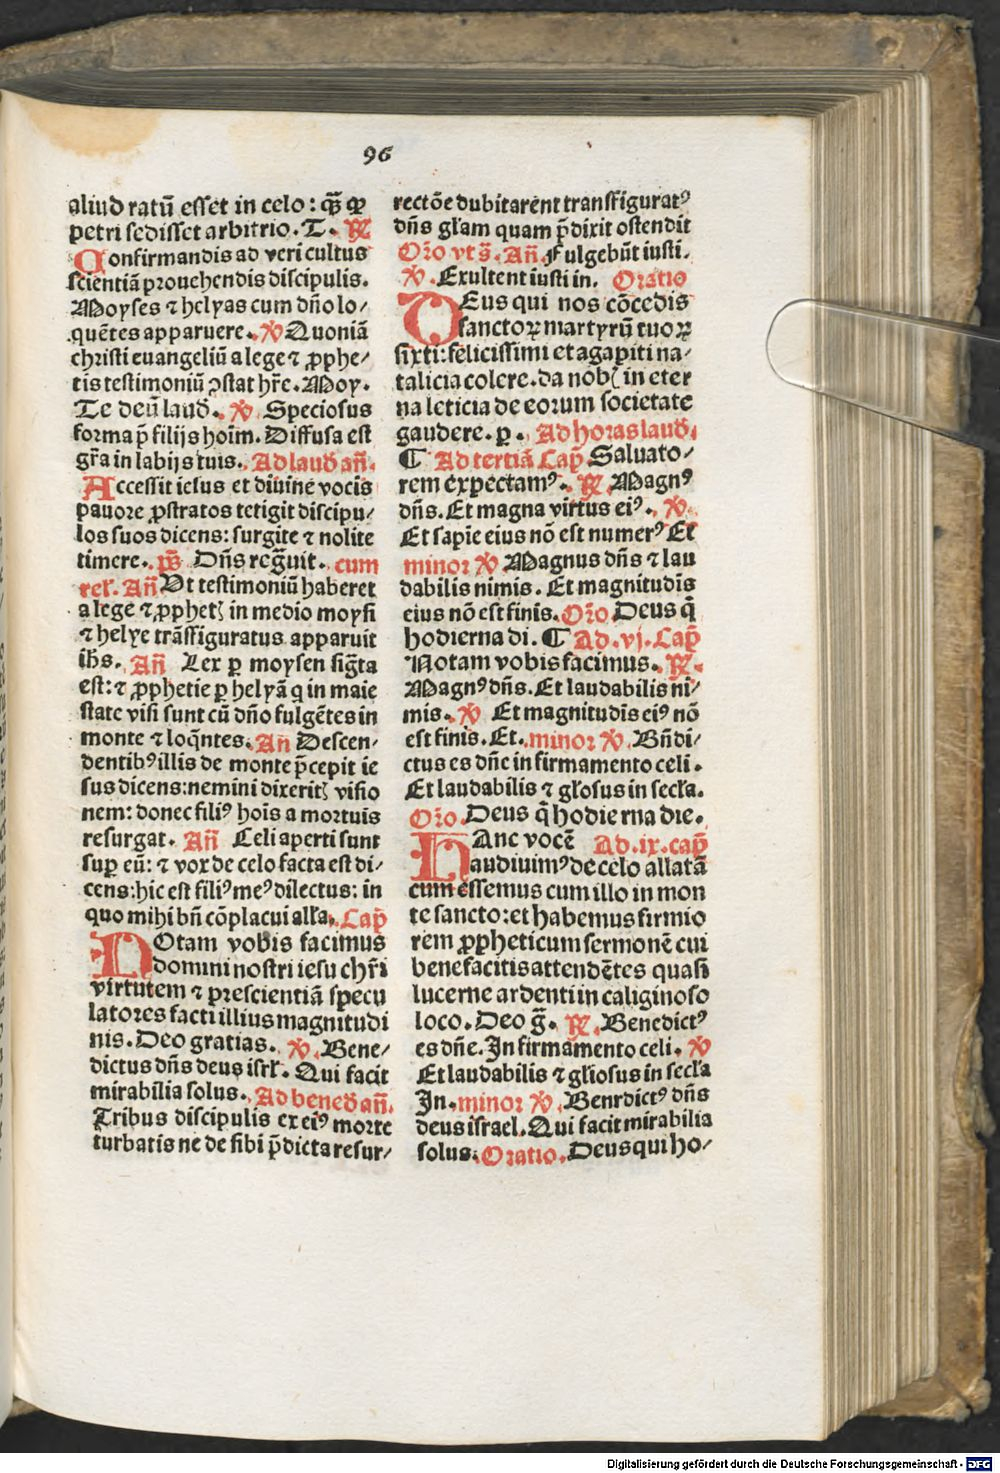 96
aliud ratū esset in celo: qꝫ̄ qꝑ
petri sedisset arbitrio. T. ℟
Confirmandis ad veri cultus
scientiā prouehendis discipulis.
Moyses ⁊ helyas cum dño lo/
quētes apparuere. ℣ Quoniā
christi euangeliū a lege ⁊ ꝓphe/
tis testimoniū ꝯstat hr̄e. Moy.
Te deū laud. ℣. Speciosus
forma p̄ filijs hoīm. Diffusa est
gr̄a in labijs tuis. Ad laud añ.
Accessit iesus et diuine vocis
pauore ꝓstratos tetigit discipu/
los suos dicens: surgite ⁊ nolite
timere. p̄s. Dñs reḡuit. cum
rel'. Añ Ut testimoniū haberet
a lege ⁊ ꝓphetꝭ in medio moysi
⁊ helye trāsfiguratus apparuit
ihs. Añ Lex ꝑ moysen sig̃ta
est: ⁊ ꝓphetie ꝑ helyā q in maie
state visi sunt cū dño fulgētes in
monte ⁊ loq̄ntes. Añ Descen/
dentibꝰ illis de monte p̄cepit ie
sus dicens: nemini dixeritꝭ visio
nem: donec filiꝰ hoīs a mortuis
resurgat. Añ Celi aperti sunt
suꝑ eū: ⁊ vox de celo facta est di/
cens: hic est filiꝰ meꝰ dilectus: in
quo mihi bñ cōplacui alľa. Cap̄
Notam vobis facimus
domini nostri iesu chr̄i
virtutem ⁊ prescientiā specu
latores facti illius magnitudi
nis. Deo gratias. ℣. Bene/
dictus dñs deus isrľ. Qui facit
mirabilia solus. Ad bened añ.
Tribus discipulis ex eiꝰ morte
turbatis ne de sibi p̄dicta resur/
rectōe dubitarēnt transfiguratꝰ
dñs gľam quam p̄dixit ostendit
Oro̅ vt s̄. Añ. Fulgebūt iusti.
℣. Exultent iusti in. Oratio
Deus qui nos cōcedis
sanctoꝝ martyrū tuoꝝ
sixti: felicissimi et agapiti na/
talicia colere. da nobꝭ in eter
na leticia de eorum societate
gaudere. p. Ad horas laud.
¶ Ad tertiā Cap̄. Saluato/
rem expectamꝰ. ℟. Magnꝰ
dñs. Et magna virtus eiꝰ. ℣.
Et sapīe eius nō est numerꝰ Et
minor ℣ Magnus dñs ⁊ lau
dabilis nimis. Et magnitudīs
eius nō est finis. Oro̅. Deus q̄
hodierna di. ¶ Ad. vj. Cap̄
Notam vobis facimus. ℟.
Magnꝰ dñs. Et laudabilis ni/
mis. ℣ Et magnitudīs eiꝰ nō
est finis. Et. minor ℣. Bñdi/
ctus es dñe in firmamento celi.
Et laudabilis ⁊ gľosus in secľa.
Oro̅. Deus q̄ hodie rna die.
Hanc vocē Ad. ix. cap̄
audiuimꝰ de celo allatā
cum essemus cum illo in mon
te sancto: et habemus firmio
rem ꝓpheticum sermonē cui
benefacitis attendētes quasi
lucerne ardenti in caliginoso
loco. Deo g̃. ℟. Benedictꝰ
es dñe. In firmamento celi. ℣
Et laudabilis ⁊ gľiosus in secľa
In. minor ℣. Benrdictꝰ dñs
deus israel. Qui facit mirabilia
solus. Oratio. Deus qui ho/
Digitalisierung gefördert durch die Deutsche Forschungsgemeinschaft - DFG